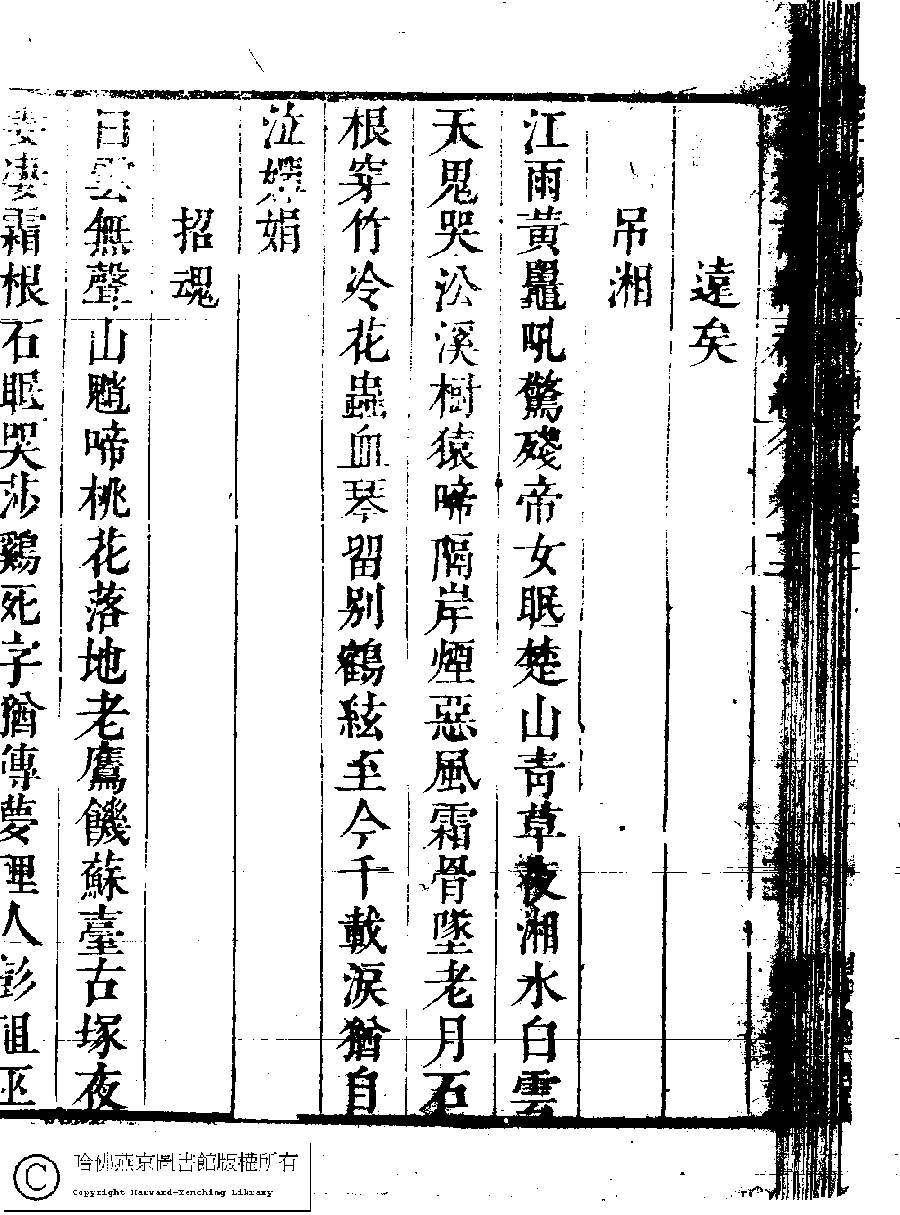 遠矣
吊湘
江雨黃鼉吼驚殘帝女眠楚山青草夜湘水白雲
天鬼哭訟溪樹猿啼隔岸煙惡風霜骨墜老月石
根穿竹冷花蟲血琴留別鶴絃至今千載淚猶自
泣嬋娟
招魂
白雲無聲山魈啼桃花落地老鷹饑蘇臺古塚夜
凄霜根石眠哭莎鷄死字猶傳夢理人彭祖巫
哈佛燕京圖書館版權所有
Copyright Harvard-Yenching Library